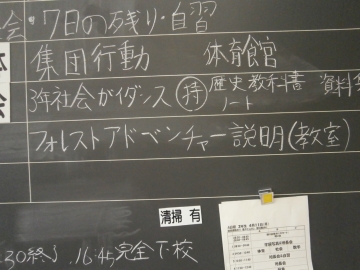 会・7日の残り・自習
集団行動 体育館
3年社会ガイダンス 持 歴史教科書 資料
ノート
会
フォレストアドベンチャー説明(教室)
清掃 有
30終了.16:45完全下校